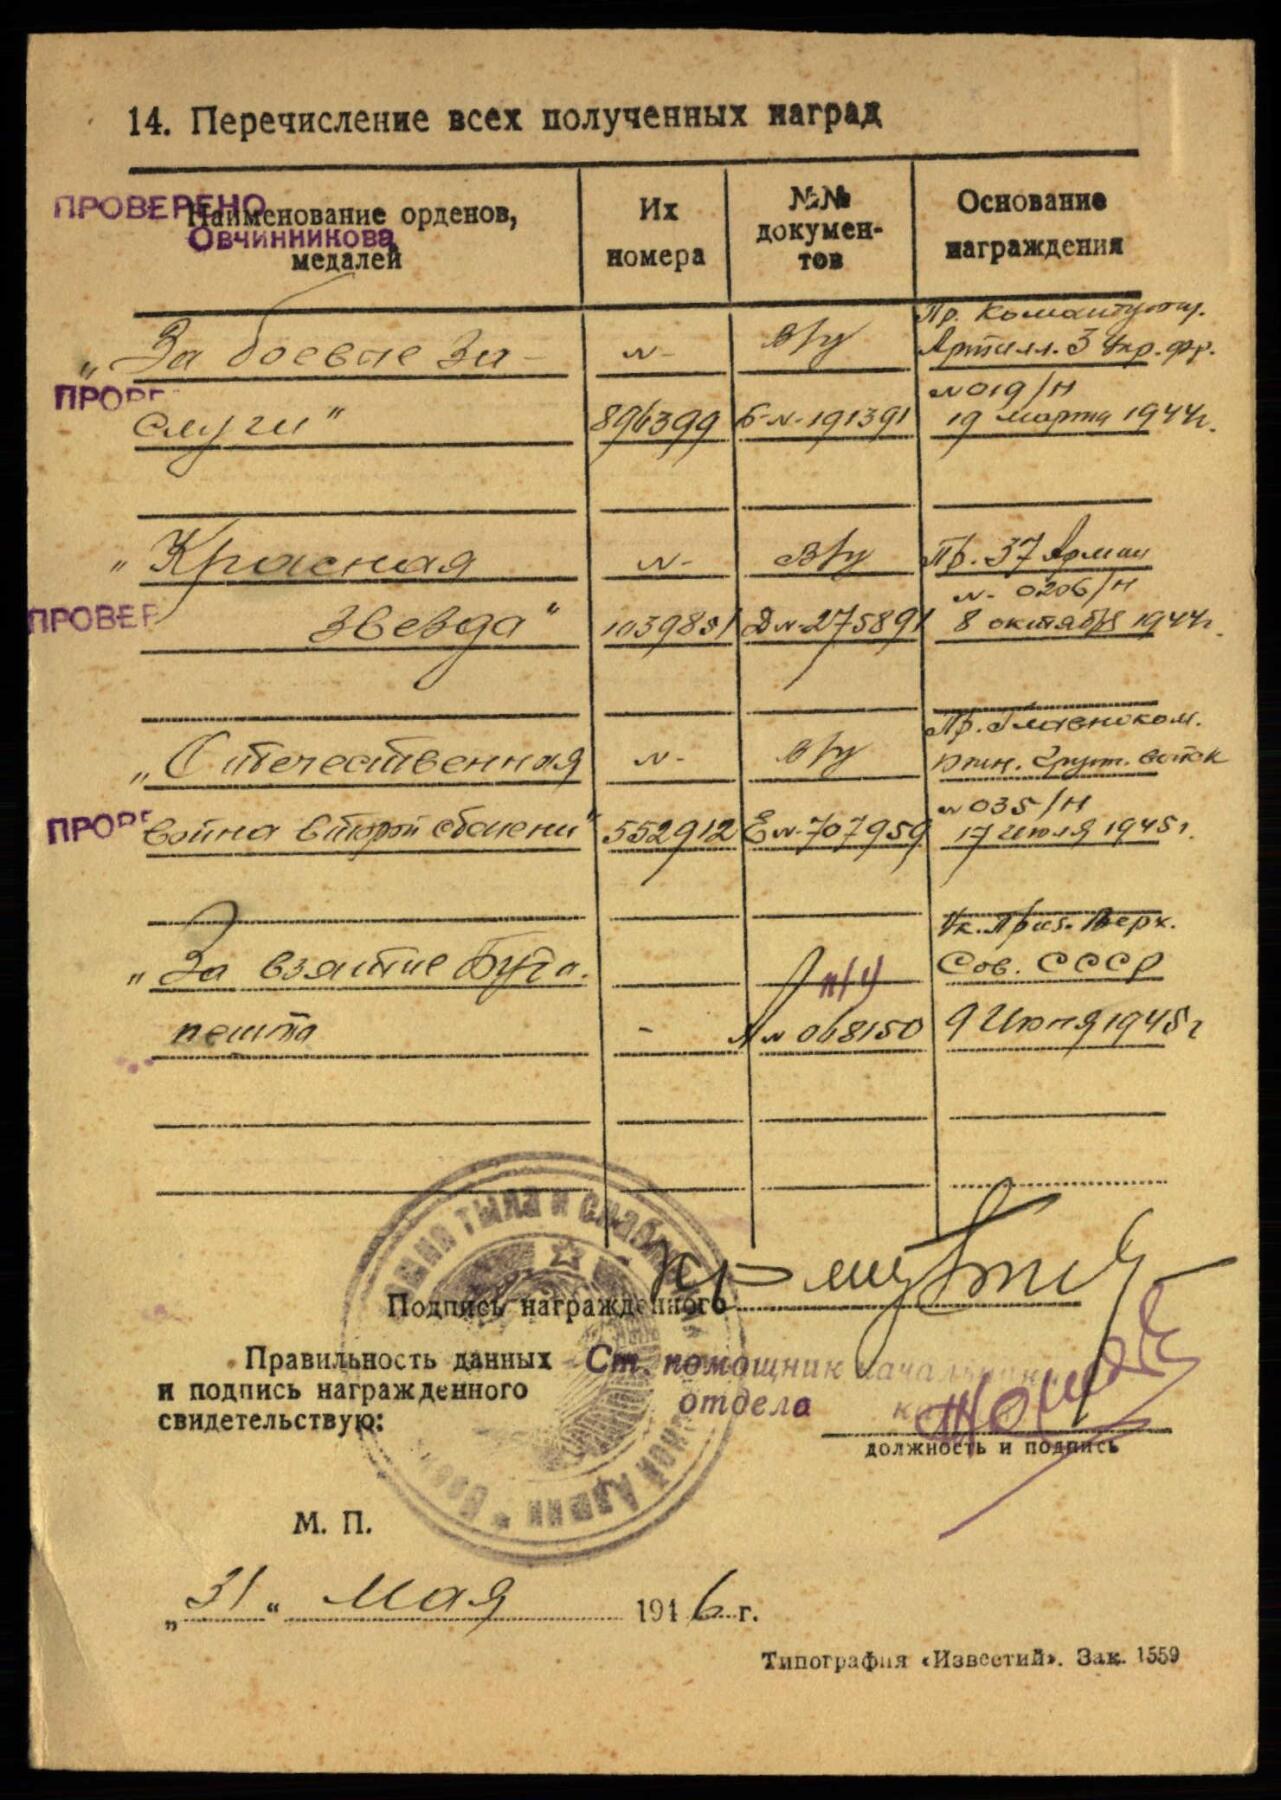 14. Перечисление всех полученных наград
ПРОВЕРЕНО
Овчинникова
Наименование орденов, медалей
Их номера
№№ докумен-тов
Основание награждения
„За боевые за-
№
в/у
Пр. Командующ.
Артилл. 3 Укр. фр.
ПРОВЕ
слуги"
896399
Б-№-191391
№019/н
19 марта 1944г.
„Красная
№
в/у
Пр. 37 Армии
№ 0206/н
ПРОВЕР
Звезда"
1039851
Д№-275891
8 октября 1944г.
„Отечественная
№
в/у
Пр. Главноком.
Южн. Групп. войск
ПРОВЕ
война второй степени"
552912
Е№-707959
№035/н
17 Июля 1945г.
„За взятие Буда-
п/у
Ук. През. Верх.
Сов. СССР
пешта
-
А№ 068150
9 Июня 1945г
Подпись награжденного
Правильность данных
и подпись награжденного
свидетельствую:
Ст. помощник начальника
отдела
должность и подпись
тыла и снабжения
ной Арми
М. П.
„31" мая 1946 г.
Типография «Известий». Зак. 1559